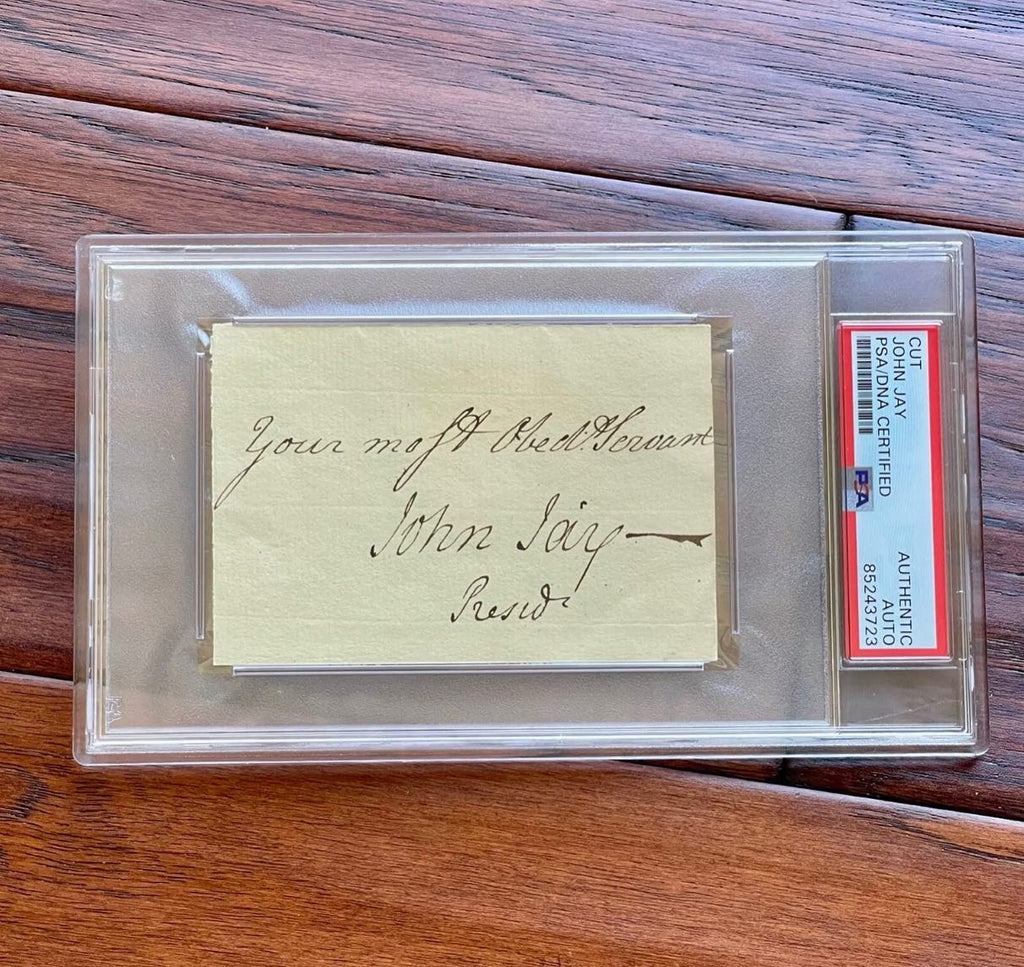 Your most Obed.t Servant
John Jay
Presid.t
CUT
JOHN JAY
PSA/DNA CERTIFIED
PSA
AUTHENTIC
AUTO
85243723